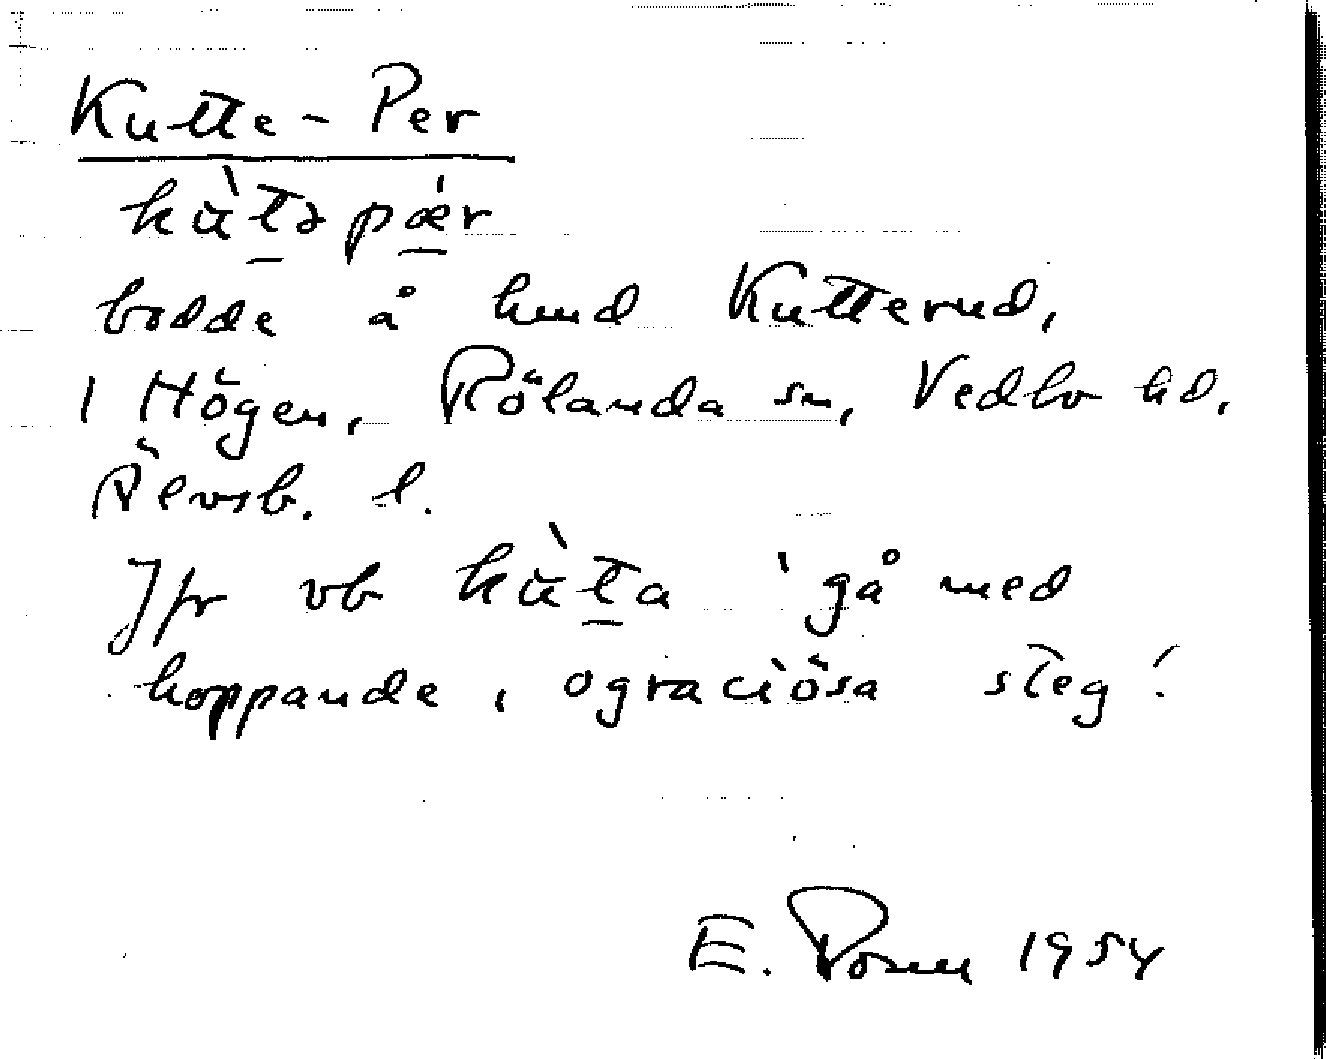 Kutte-Per
kùtəpǽr
bodde å hmd Kutterud,
i Högen, Rölanda sn, Vedbo hd,
Älvsb. l.
Jfr vb kùta 'gå med
hoppande, ograciösa steg'.
E. 1954